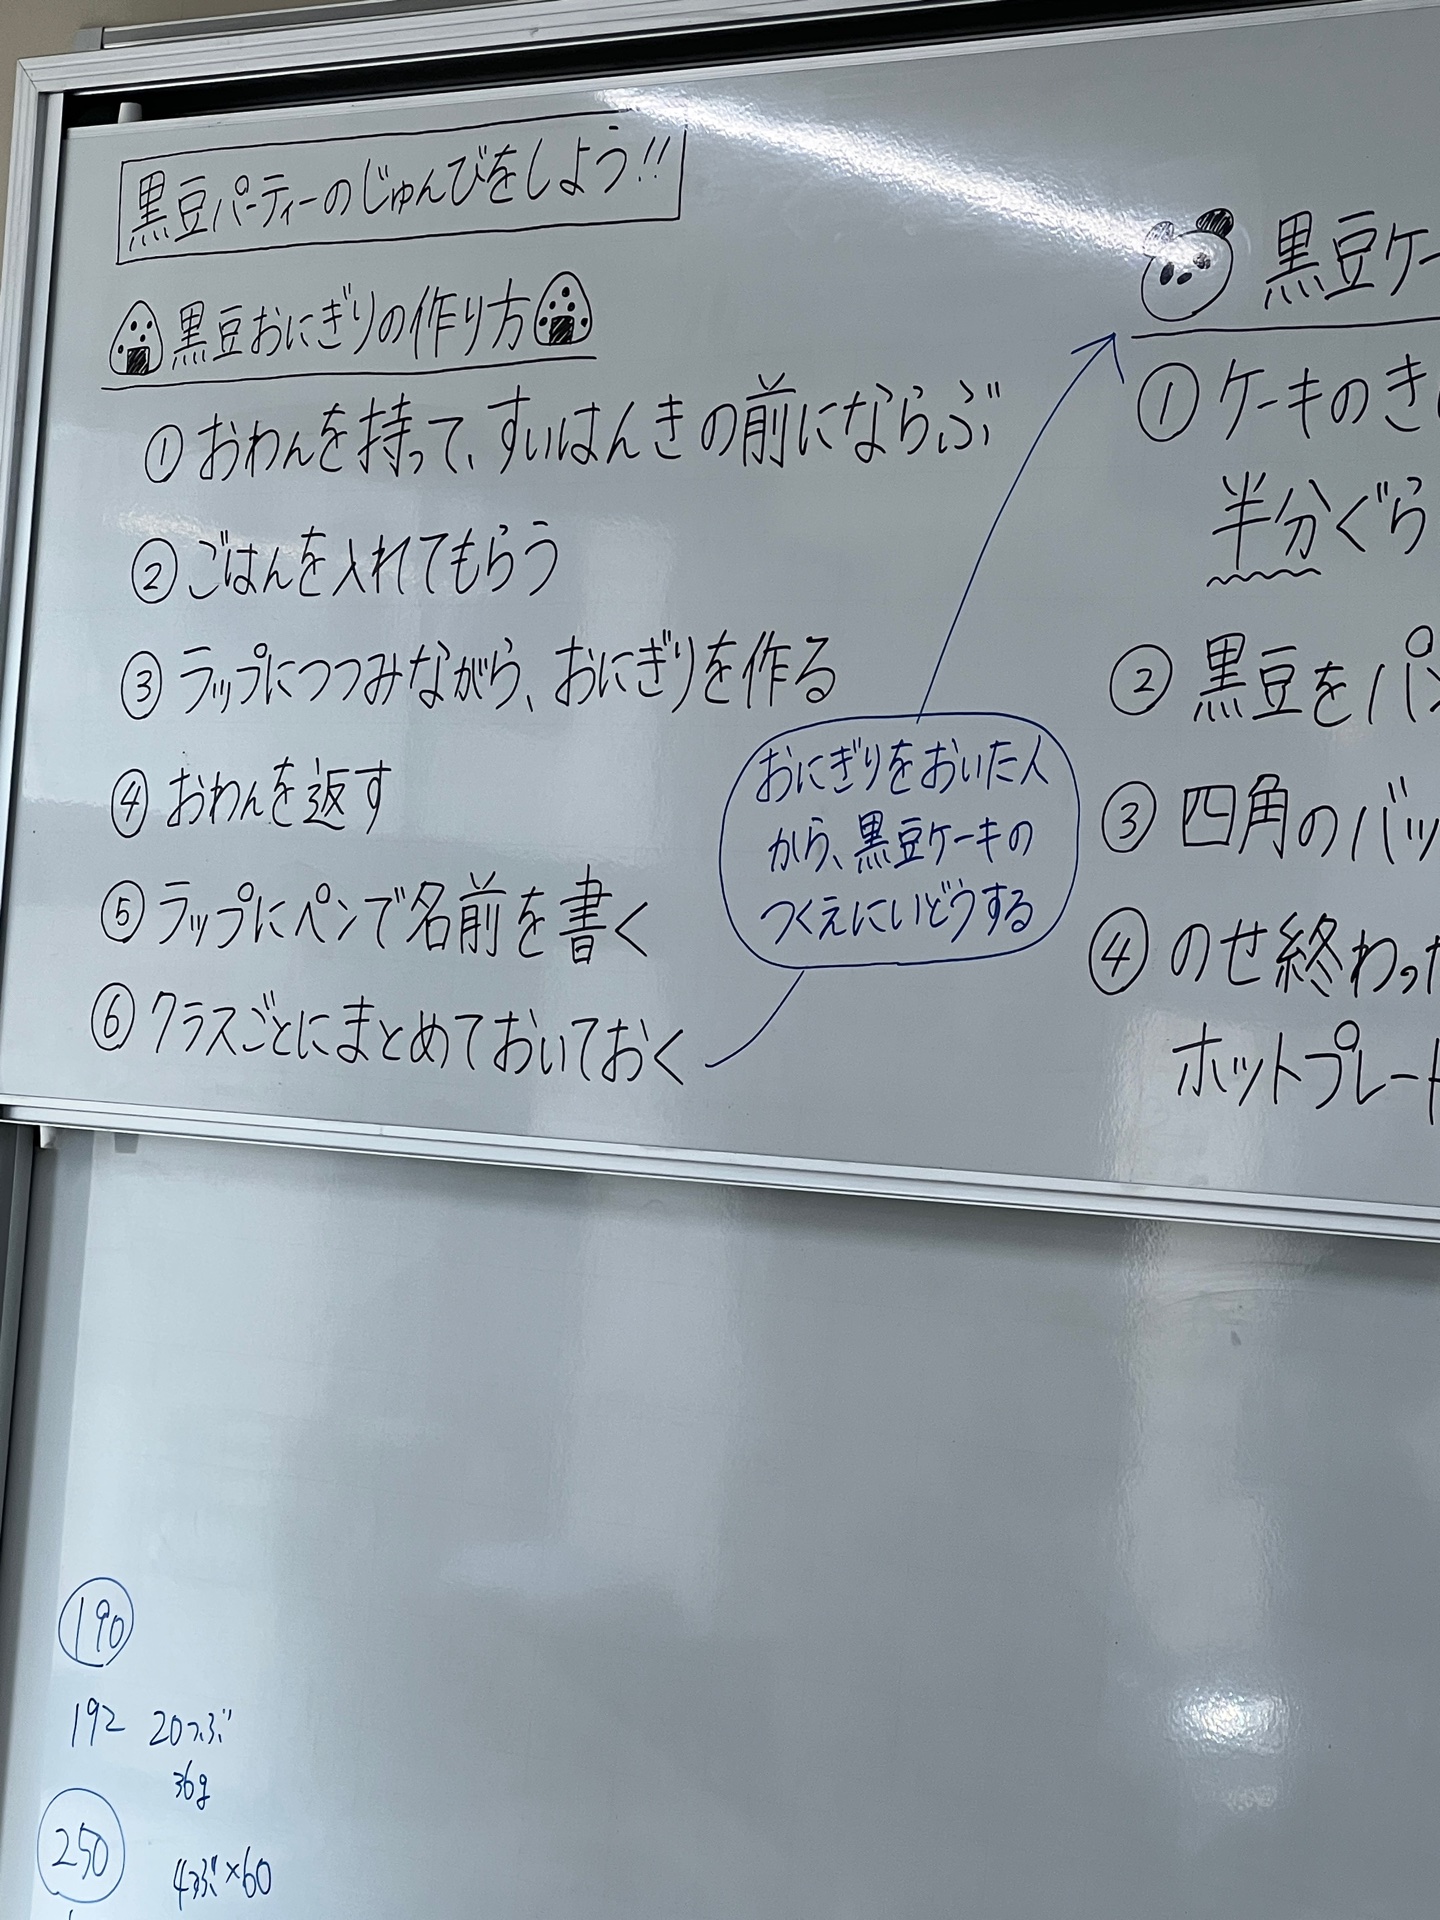 黒豆パーティーのじゅんびをしよう!!
黒豆おにぎりの作り方
①おわんを持って、すいはんきの前にならぶ
②ごはんを入れてもらう
③ラップにつつみながら、おにぎりを作る
④おわんを返す
⑤ラップにペンで名前を書く
⑥クラスごとにまとめておいておく
おにぎりをおいた人
から、黒豆ケーキの
つくえにいどうする
黒豆ケー
①ケーキのき
半分ぐら
②黒豆をパ
③四角のバッ
④のせ終わった
ホットプレート
190
192 20つぶ
36g
250
4つぶ×60